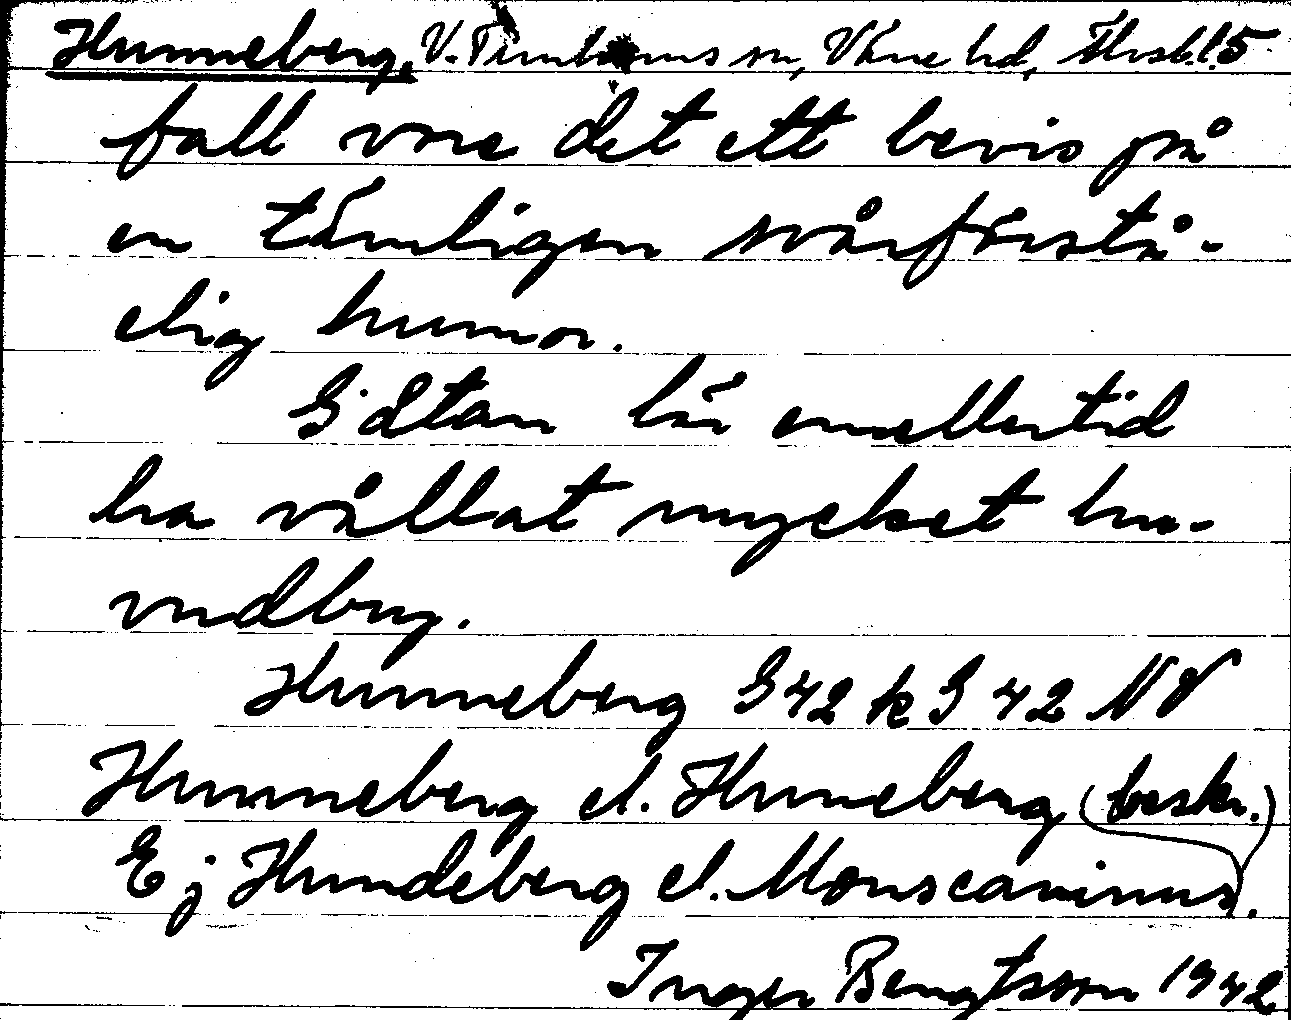 Hunneberg, V. Tunhems sn, Väne hd, Älvsb.l. 5
fall vore det ett bevis på
en tämligen svårförstå-
elig humor.
Gåtan lär emellertid
ha vållat mycket hu-
vudbry.
Hunneberg G 42 k G 42 NV
Hunneberg el. Huneberg (beskr.)
Ej Hundeberg el. Mons caninus.
Inger Bengtsson 1942